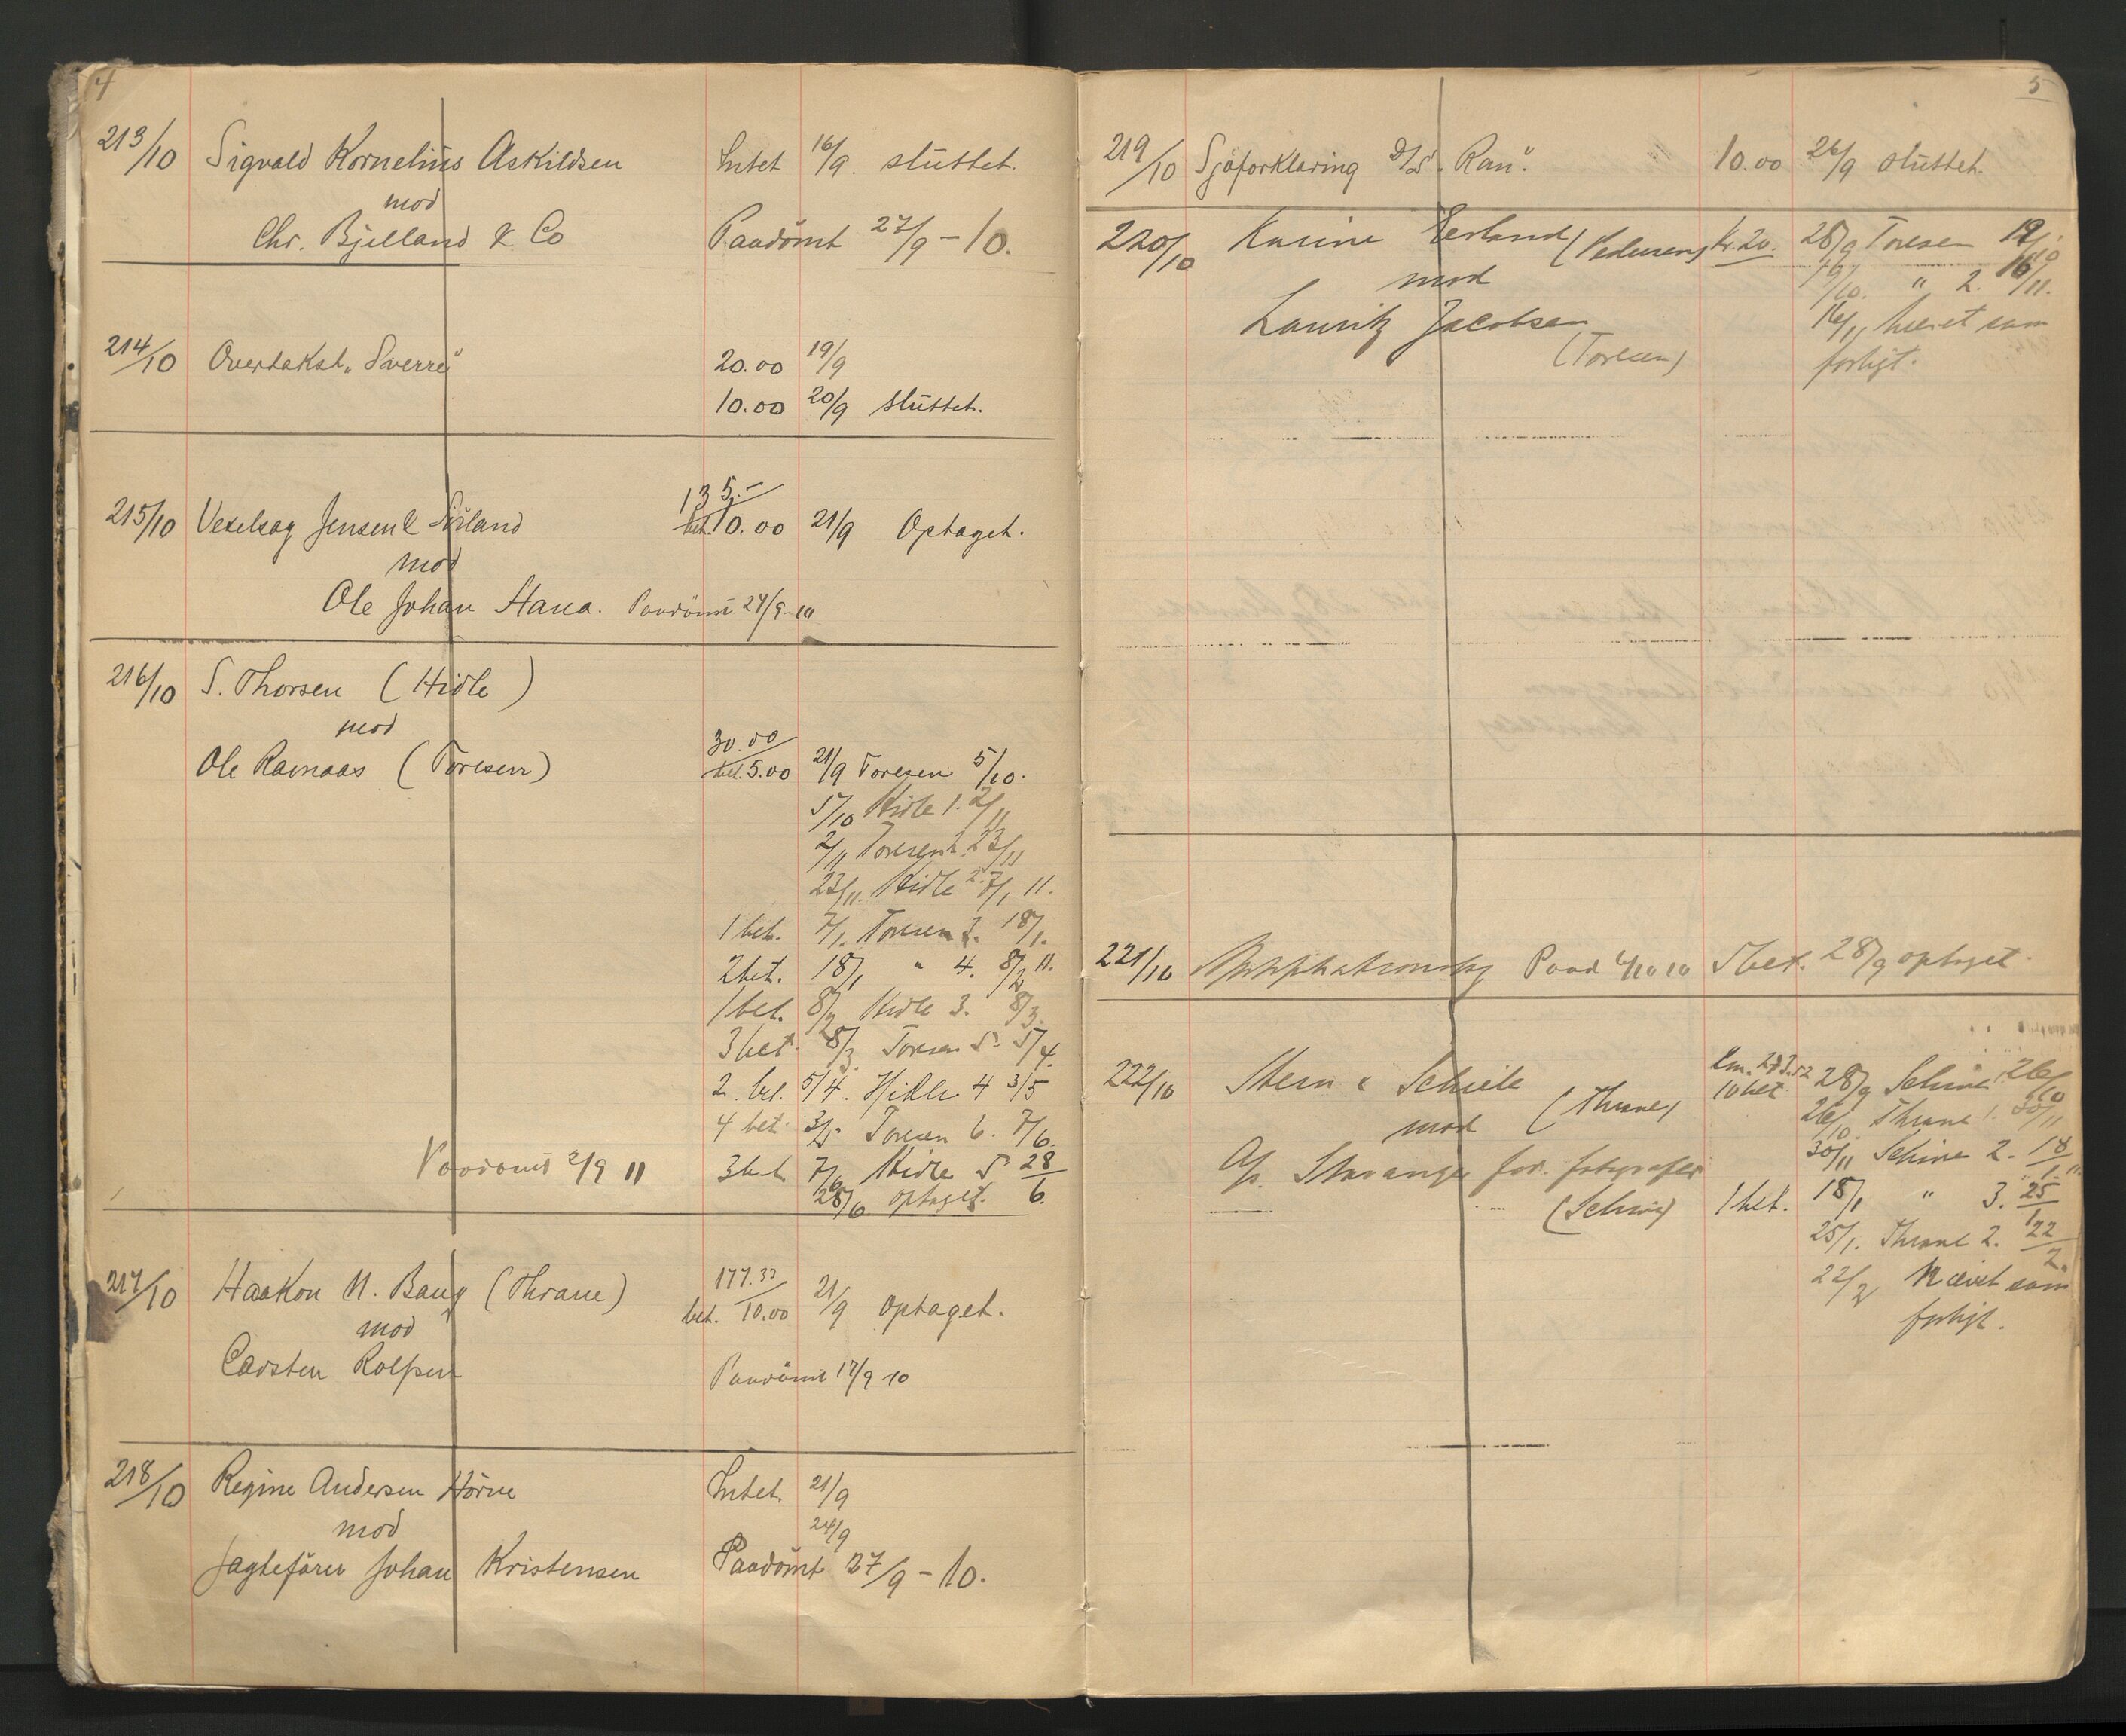 4
213/10 Sigvald Kornelius Askildsen Intet 16/9. sluttet.
mod
Chr. Bjelland & Co Paadömt 27/9 - 10.
214/10 Overtakst „Sverre" 20.00 19/9
10.00 20/9 sluttet.
135.-
215/10 Vexelsag Jensen & Söiland bet. 10.00 21/9 Optaget.
mod
Ole Johan Hana. Paadömt 24/9-10
216/10 S. Thorsen (Hidle)
mod
30.00
Ole Ramaas (Toresen) bet. 5.00 21/9 Toresen 5/10.
5/10 Hidle 1. 2/11
2/11 Toresen 2. 23/11
23/11. Hidle 2. 7/1 11.
1 bet. 7/1. Toresen 3. 18/1.
2 bet. 18/1 " 4. 8/2 11.
1 bet. 8/2 Hidle 3. 8/3.
3 bet. 8/3 Toresen 5. 5/4.
2. bet. 5/4. Hidle 4 3/5
4 bet. 3/5. Toresen 6. 7/6.
Paadömt 2/9 11 3 bet 7/6 Hidle 5 28/6.
28/6 optaget.
177.33
217/10 Haakon N. Baug (Thrane) bet. 10.00 21/9 Optaget.
mod
Carsten Rolfsen Paadömt 17/9 10
218/10 Regine Andersen Hörne Intet. 21/9
mod 24/9
Jagtefärer Johan Kristensen Paadömt 27/9 - 10.
5
219/10 Sjöforklaring D/S „Ran". 10.00 26/9 sluttet.
220/10 Karine (Pedersen) kr. 20. 28/9 Toresen 19/10
mod 19/10. " 2. 16/11.
Lauritz Jacobsen 16/11 hævet som
(Toresen) forligt.
221/10 Paad 4/10 10 5 bet. 28/9 optaget.
222/10 Stern & Schiele 10 bet. 28/9 Schiøe 26/10
mod (Thrane) 26/10. Thrane 1. 30/11
A/s. Stavanger for. fotografer 30/11 Schiøe 2. 18/1. 11
(Schiøe) 1 bet. 18/1 " 3. 25/1
25/1. Thrane 2. 22/2.
22/2 Hævet som
forligt.